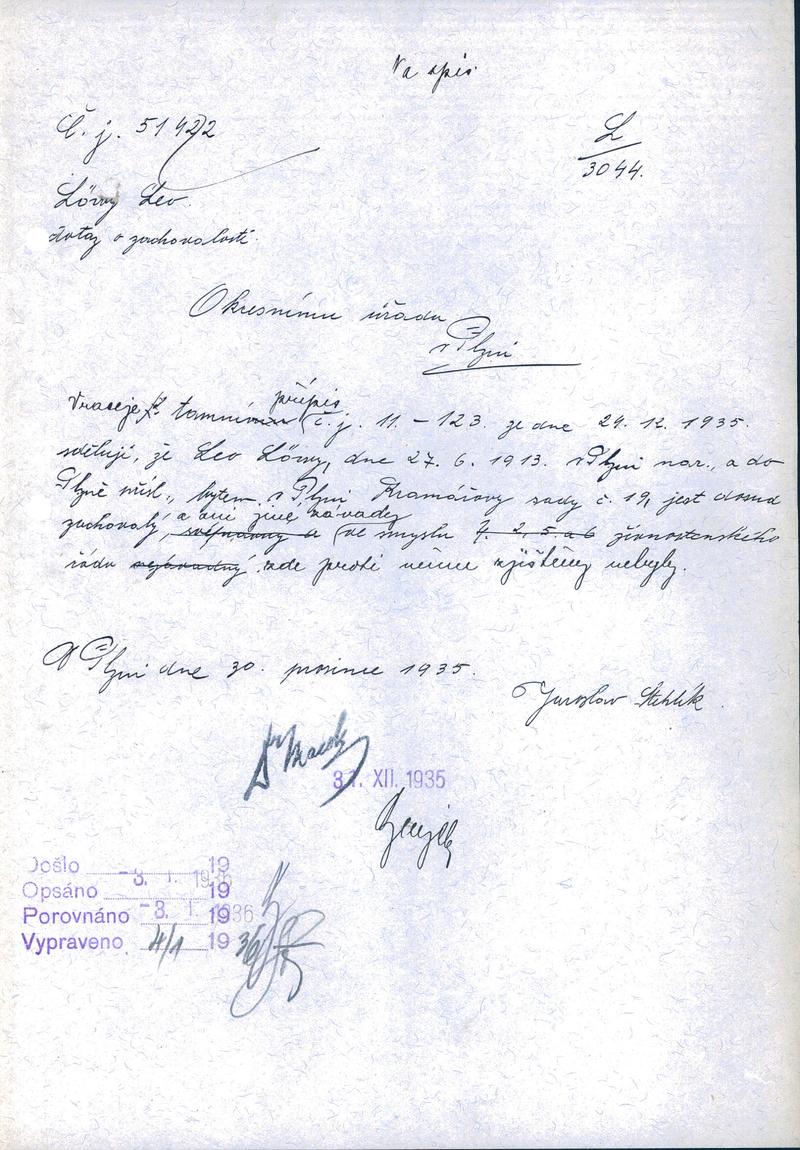 Na spis
Č. j. 51422
L
3044.
Löwy Leo.
dotaz o zachovalosti.
Okresnímu úřadu
v Plzni
přípis
Vraceje k tamním č. j. 11 – 123. ze dne 24. 12. 1935.
sděluji, že Leo Löwy, dne 27. 6. 1913. v Plzni nar., a do
Plzně přísl., bytem v Plzni Kramářovy sady č. 19, jest dosud
a ani jiné závady
zachovalý, a ve smyslu 7. 2, 5 a 6 živnostenského
řádu zde proti němu zjištěny nebyly.
V Plzni dne 30. prosince 1935.
Jaroslav Stehlík
31. XII. 1935
Došlo 19
Opsáno -3. I. 1936 19
Porovnáno -3. I. 1936 19
Vypraveno 4/1 19 36